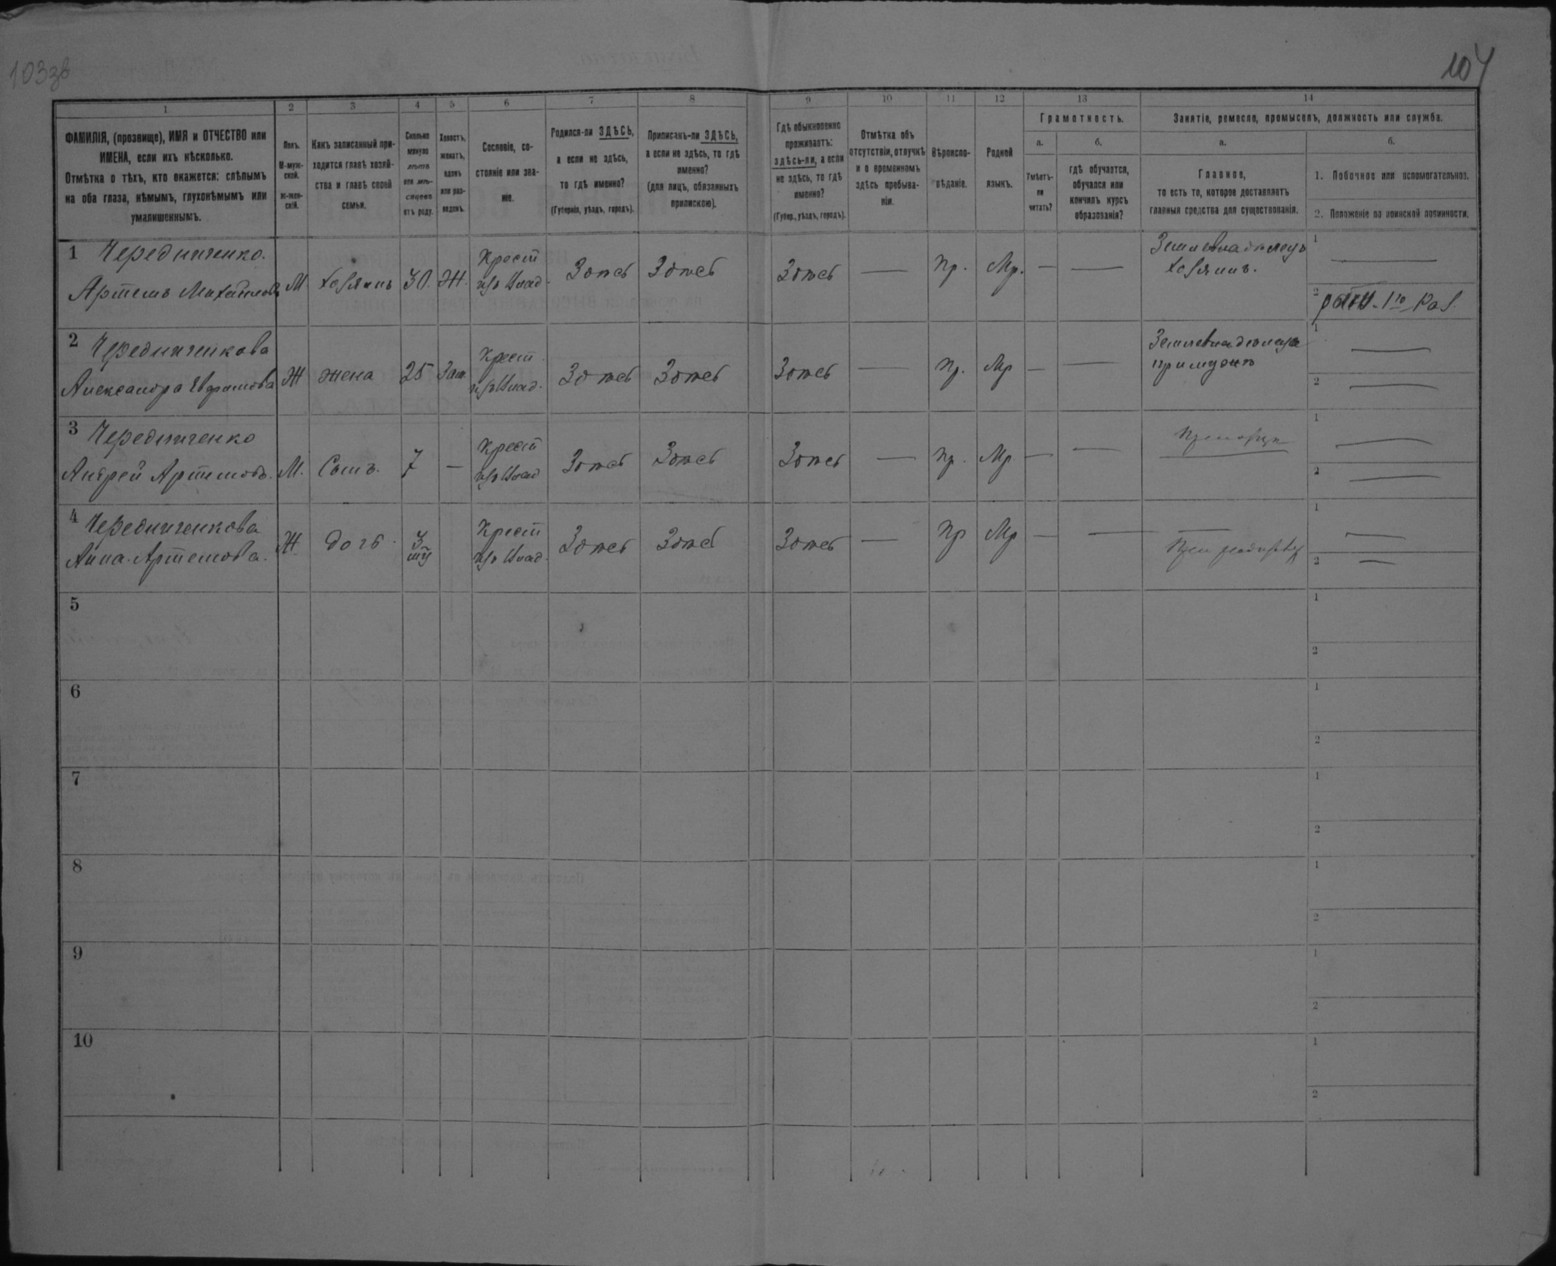 103зв
104
1
2
3
4
5
6
7
8
9
10
11
12
13
14
ФАМИЛІЯ, (прозвище), ИМЯ и ОТЧЕСТВО или
ИМЕНА, если ихъ нѣсколько.
Отмѣтка о тѣхъ, кто окажется: слѣпымъ
на оба глаза, нѣмымъ, глухонѣмымъ или
умалишеннымъ.
Полъ.
М-муж-
ской.
Ж-жен-
скій.
Какъ записанный при-
ходится главѣ хозяй-
ства и главѣ своей
семьи.
Сколько
минуло
лѣтъ
или мѣся-
цевъ
отъ роду.
Холостъ,
женатъ,
вдовъ
или раз-
веденъ.
Сословіе, со-
стояніе или зва-
ніе.
Родился-ли ЗДѢСЬ,
а если не здѣсь,
то гдѣ именно?
(Губернія, уѣздъ, городъ).
Приписанъ-ли ЗДѢСЬ,
а если не здѣсь, то гдѣ
именно?
(для лицъ, обязанныхъ
припискою).
Гдѣ обыкновенно
проживаетъ:
здѣсь-ли, а если
не здѣсь, то гдѣ
именно?
(Губер., уѣздъ, городъ).
Отмѣтка объ
отсутствіи, отлучкѣ
и о временномъ
здѣсь пребыва-
ніи.
Вѣроиспо-
вѣданіе.
Родной
языкъ.
Грамотность.
а.
б.
Умѣетъ-
ли
читать?
гдѣ обучается,
обучался или
кончилъ курсъ
образованія?
Занятіе, ремесло, промыселъ, должность или служба.
а.
б.
Главное,
то есть то, которое доставляетъ
главныя средства для существованія.
1. Побочное или вспомогательное.
2. Положеніе по воинской повинности.
1 Чередниченко.
Артемъ Михайловъ
М
хозяинъ
30.
Ж.
Крест
Здѣсь
Здѣсь
Здѣсь
—
Пр.
Мр.
—
—
Земледѣлецъ
хозяинъ.
1 —
2
2 Чередниченкова
Александра Ефимова
Ж
жена
25
Зам
Крест
Здѣсь
Здѣсь
Здѣсь
—
Пр.
Мр
—
—
1 —
2 —
3 Чередниченко
Андрей Артемовъ.
М.
Сынъ.
7
—
Крест
Здѣсь
Здѣсь
Здѣсь
—
Пр.
Мр
—
—
1 —
2 —
4 Чередниченкова
Анна Артемова.
Ж
дочь
3
Крест
Здѣсь
Здѣсь
Здѣсь
—
Пр
Мр
—
—
1 —
2 —
5
1
2
6
1
2
7
1
2
8
1
2
9
1
2
10
1
2